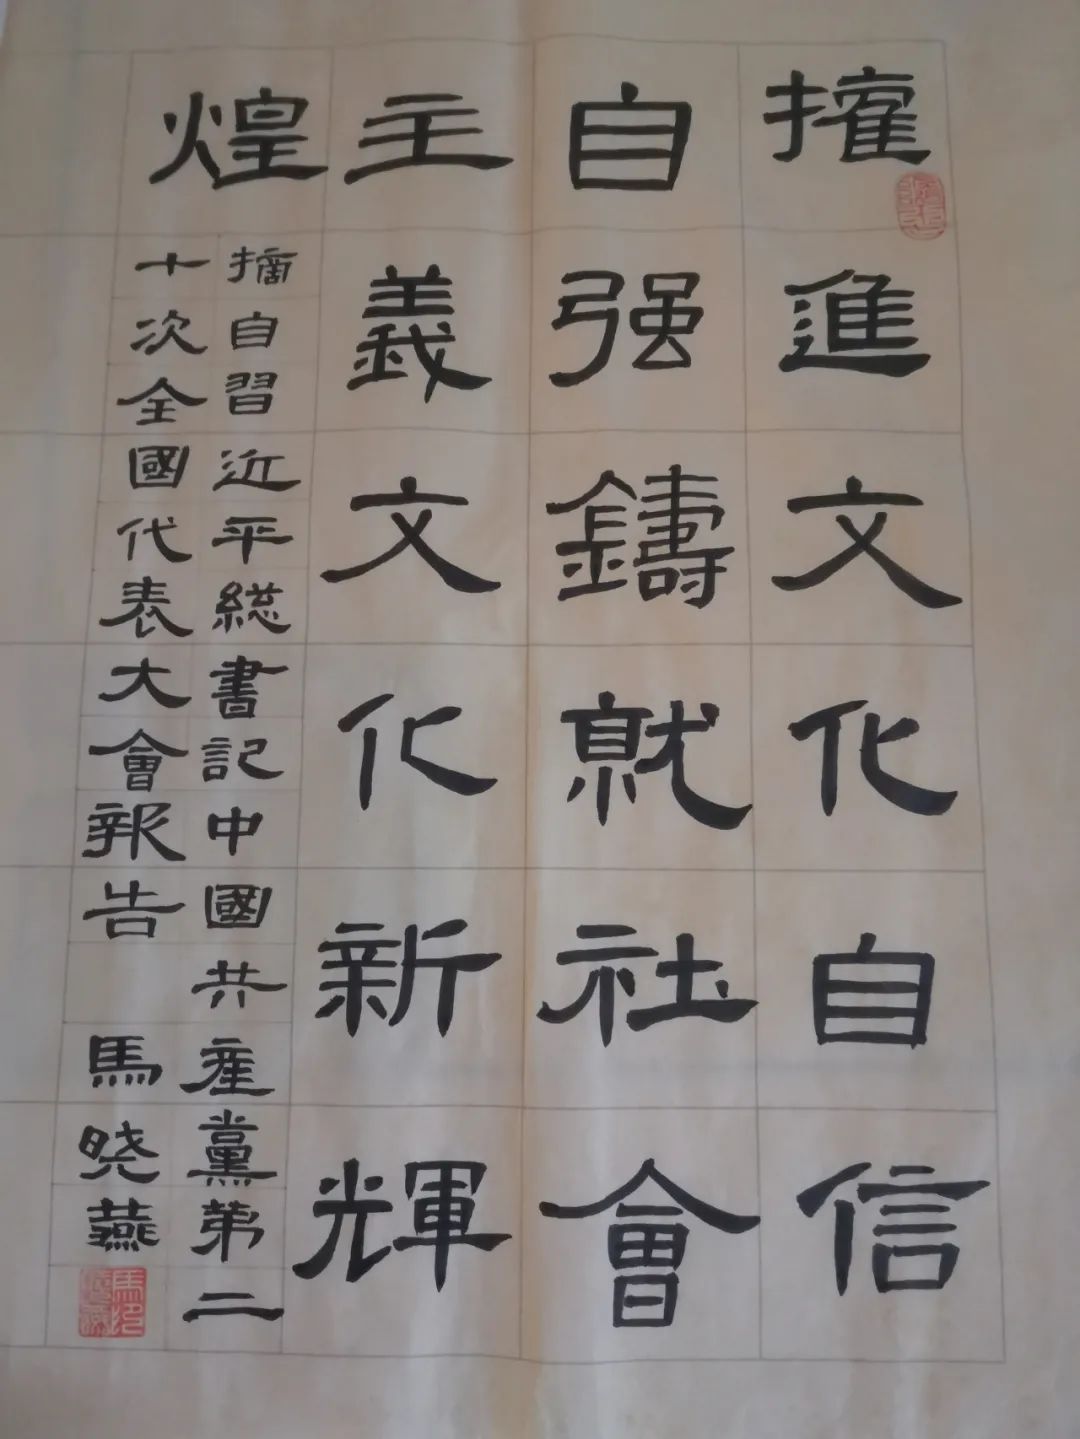 推進文化自信
自强鑄就社會
主義文化新輝
煌
摘自習近平総書記中國共産黨第二
十次全國代表大會報告 馬晓燕